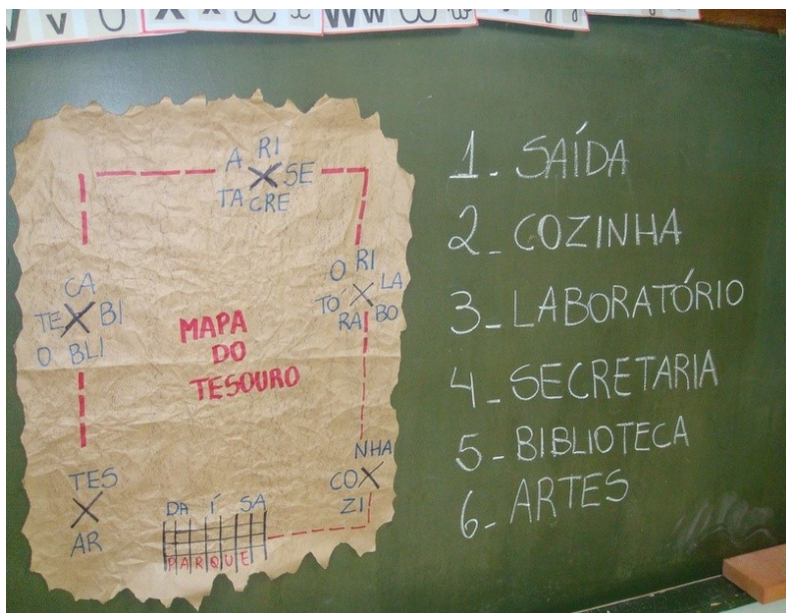 V v V X x X x W w W w
A RI SE
TA CRE
CA
TE BI
O BLI
O RI LA
TÓ RA BO
MAPA
DO
TESOURO
NHA
CO
ZI
TES
AR
DA Í SA
PARQUE
1. SAÍDA
2_ COZINHA
3_ LABORATÓRIO
4_ SECRETARIA
5_ BIBLIOTECA
6_ ARTES